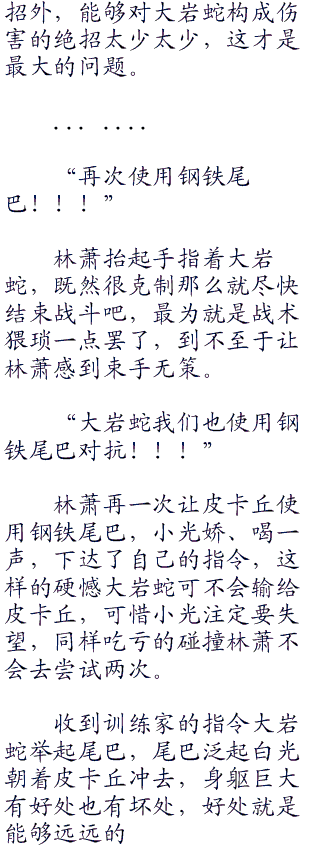 招外，能够对大岩蛇构成伤
害的绝招太少太少，这才是
最大的问题。
... ....
“再次使用钢铁尾
巴！！！”
林萧抬起手指着大岩
蛇，既然很克制那么就尽快
结束战斗吧，最为就是战术
猥琐一点罢了，到不至于让
林萧感到束手无策。
“大岩蛇我们也使用钢
铁尾巴对抗！！！”
林萧再一次让皮卡丘使
用钢铁尾巴，小光娇、喝一
声，下达了自己的指令，这
样的硬憾大岩蛇可不会输给
皮卡丘，可惜小光注定要失
望，同样吃亏的碰撞林萧不
会去尝试两次。
收到训练家的指令大岩
蛇举起尾巴，尾巴泛起白光
朝着皮卡丘冲去，身躯巨大
有好处也有坏处，好处就是
能够远远的